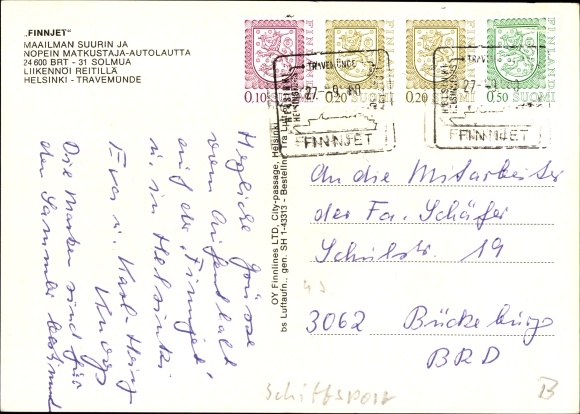 „FINNJET"
MAAILMAN SUURIN JA
NOPEIN MATKUSTAJA-AUTOLAUTTA
24 600 BRT - 31 SOLMUA
LIIKENNÖI REITILLÄ
HELSINKI - TRAVEMÜNDE
FINLAND FINLAND FINLAND FINLAND
0.10 SUOMI 0.20 SUOMI 0.20 SUOMI 0.50 SUOMI
TRAVEMÜNDE
HELSINKI
HELSINGFORS
27 -9. 80
FINNJET
TRAVEMÜNDE
HELSINKI
HELSINGFORS
27
FINNJET
Herzliche Grüsse
vom Aufenthalt
auf der „Finnjet"
u. in Helsinki
Eva u. Karl-Heinz
Die Marken sind für
den Sammler bestimmt
OY Finnlines LTD, City-passage, Helsinki
bs Luftaufn., gen. SH 1-43313 - Bestellnr. Tra Lu
An die Mitarbeiter
der Fa. Schäfer
Schulstr. 19
3062 Bückeburg
BRD
Schiffspost
B